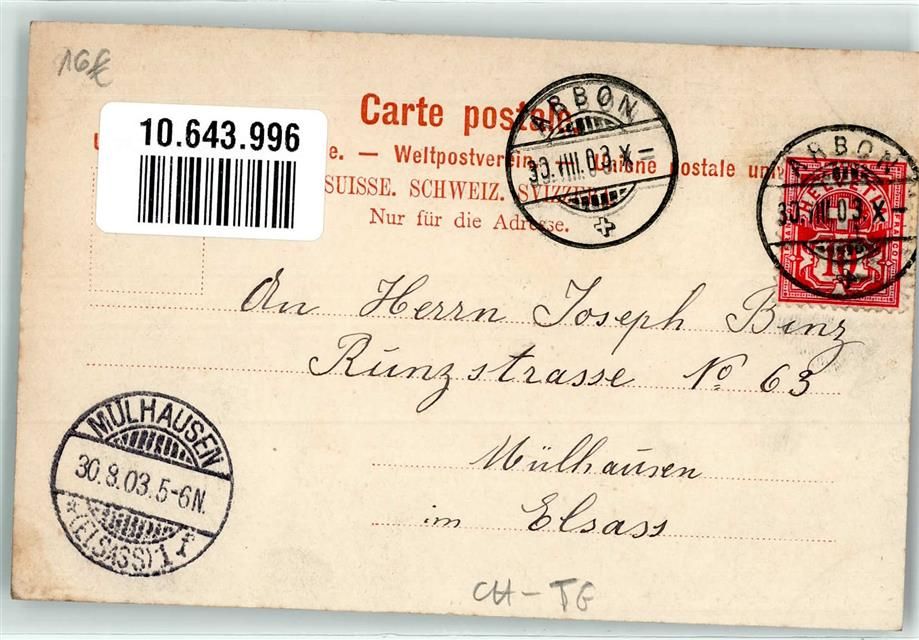 16€
10.643.996
Carte postale.
e. — Weltpostverein. — Unione postale univ
SUISSE. SCHWEIZ. SVIZZERA.
Nur für die Adresse.
ARBON
30.VIII.03.X—
ARBON
30.VIII.03.X—
HELVETIA
10
An Herrn Joseph Binz
Runzstrasse No 63
Mülhausen
im Elsass
MÜLHAUSEN
30.8.03.5-6N.
*(ELSASS)1 f
CH-TG